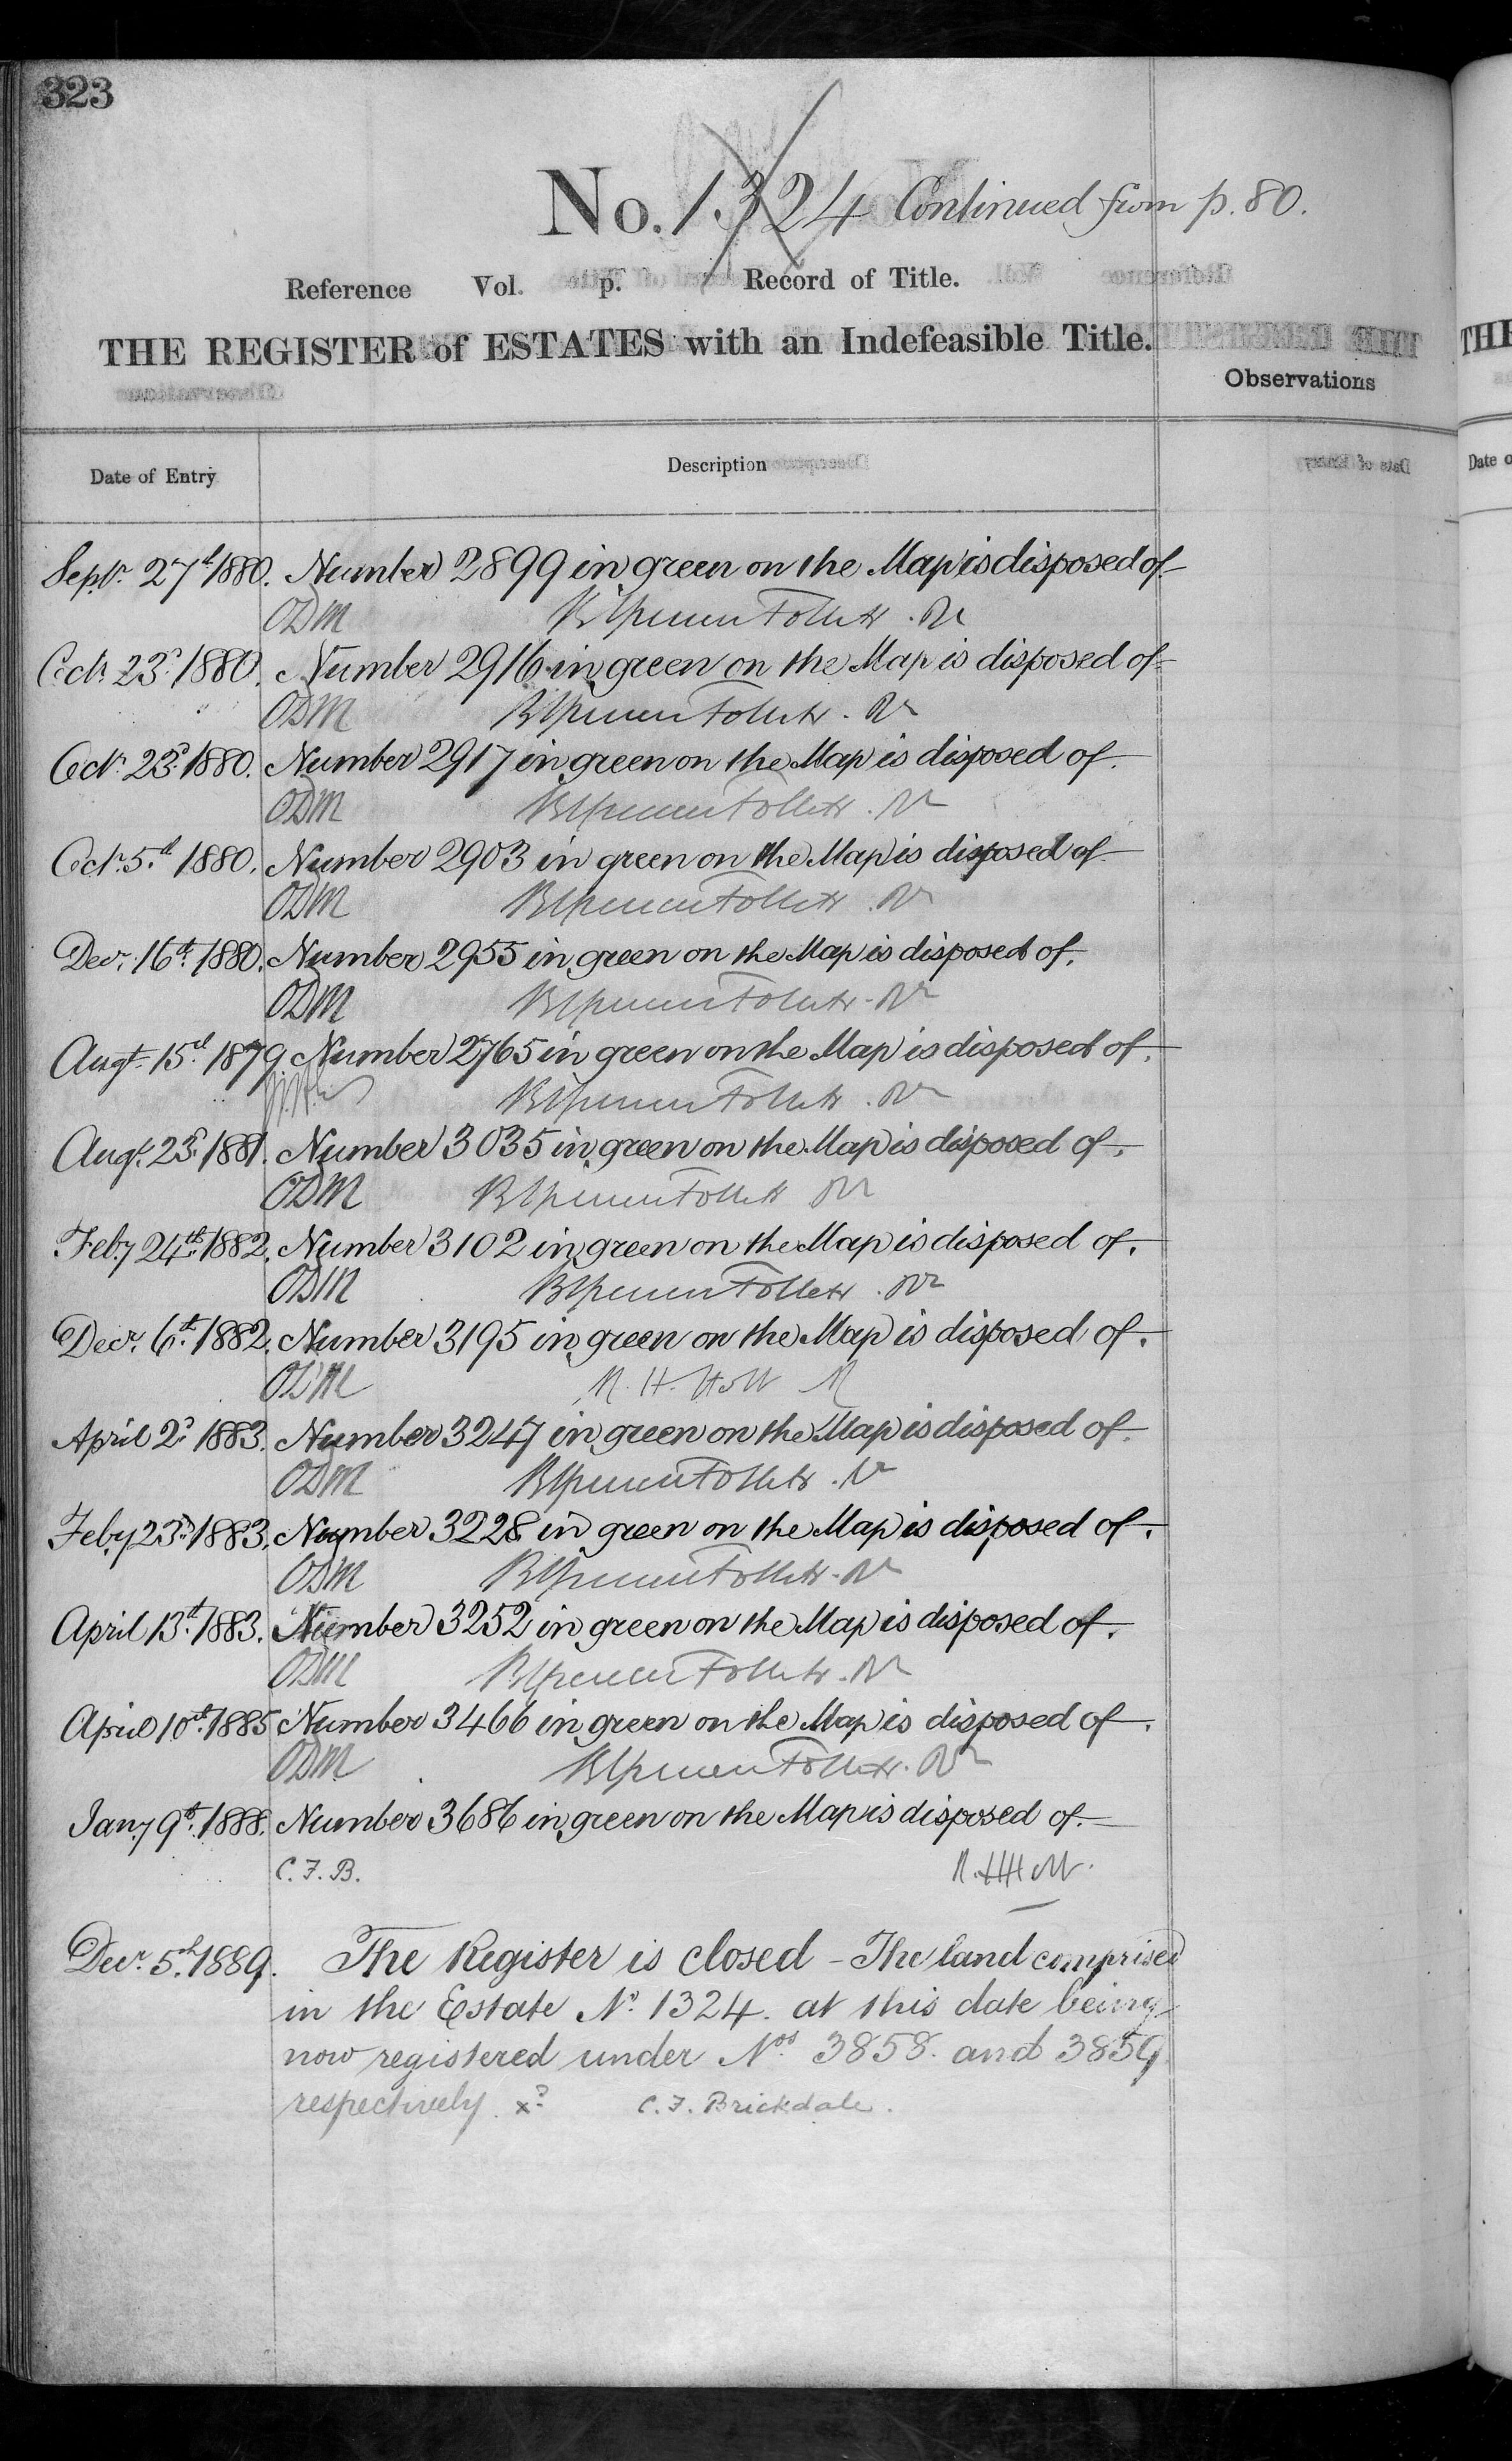 323
No. 1324 Continued from p. 80.
Reference Vol. p. Record of Title.
THE REGISTER of ESTATES with an Indefeasible Title.
Observations
Date of Entry Description
Septr. 27th 1880. Number 2899 in green on the Map is disposed of
ODM
Octr. 23d. 1880. Number 2916 in green on the Map is disposed of
ODM
Octr. 23d. 1880. Number 2917 in green on the Map is disposed of.
ODM
Octr. 5th 1880. Number 2903 in green on the Map is disposed of
ODM
Decr. 16th. 1880. Number 2955 in green on the Map is disposed of.
ODM
Augt. 15th 1879. Number 2765 in green on the Map is disposed of.
Augt. 23d. 1881. Number 3035 in green on the Map is disposed of.
ODM
Feby 24th. 1882. Number 3102 in green on the Map is disposed of.
ODM
Decr. 6th. 1882. Number 3195 in green on the Map is disposed of.
ODM R. H. Holt R
April 2d. 1883. Number 3247 in green on the Map is disposed of.
ODM
Feby 23d. 1883. Number 3228 in green on the Map is disposed of.
ODM
April 13th. 1883. Number 3252 in green on the Map is disposed of.
ODM
April 10th. 1885 Number 3466 in green on the Map is disposed of.
ODM
Jany 9th. 1888. Number 3686 in green on the Map is disposed of.
C. F. B. R. H. Holt.
Decr. 5th. 1889. The Register is closed - The land comprised
in the Estate No. 1324. at this date being
now registered under Nos. 3858. and 3859
respectively. C. F. Brickdale.
THE
Date o